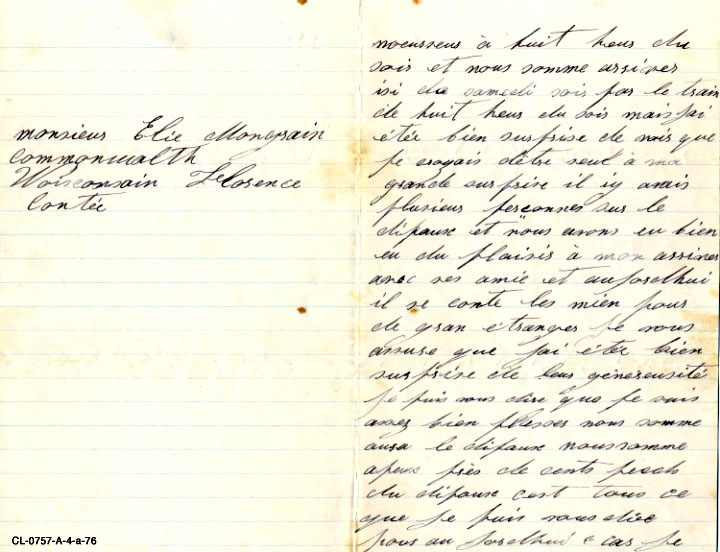 monsieur Elie Mongrain
Commonwalth
Woisconsin Florence
Contée
nocusseus à huit heus du
sois et nous somme arriver
isi du samedi sois par le train
de huit heus du sois mais jai
étée bien surprise de vois que
je croyais dêtre seul à ma
grande surprise il iy avais
plusieus personnes sur le
dipaux et nous avons eu bien
eu du plaisis à mon arrivez
avec ses amie et aujoselhui
il se conte les mien pous
de gran étranges je vous
assuse que jai étée bien
surprise de leus géneseusité
je puis vous dise que je suis
assez bien plesses nous somme
ausa le dipaux noussomme
apeus près de cents pieds
du dipaux cest tous ce
que je puis vous dise
pous au joselhui & cas je
CL-0757-A-4-a-76